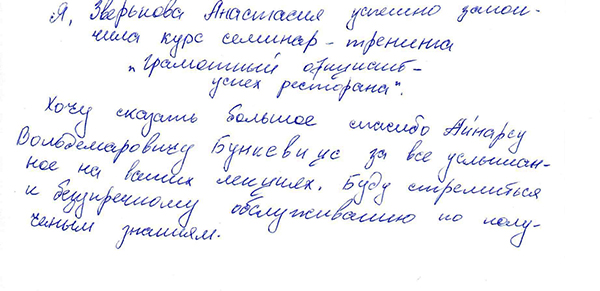 Я, Зверькова Анастасия успешно закон-
чила курс семинар-тренинга
„Грамотный официант-
успех ресторана".
Хочу сказать большое спасибо Айнарсу
Вольдемаровичу Бункевицс за все услышан-
ное на ваших лекциях. Буду стремиться
к безупречному обслуживанию по полу-
ченым знаниям.